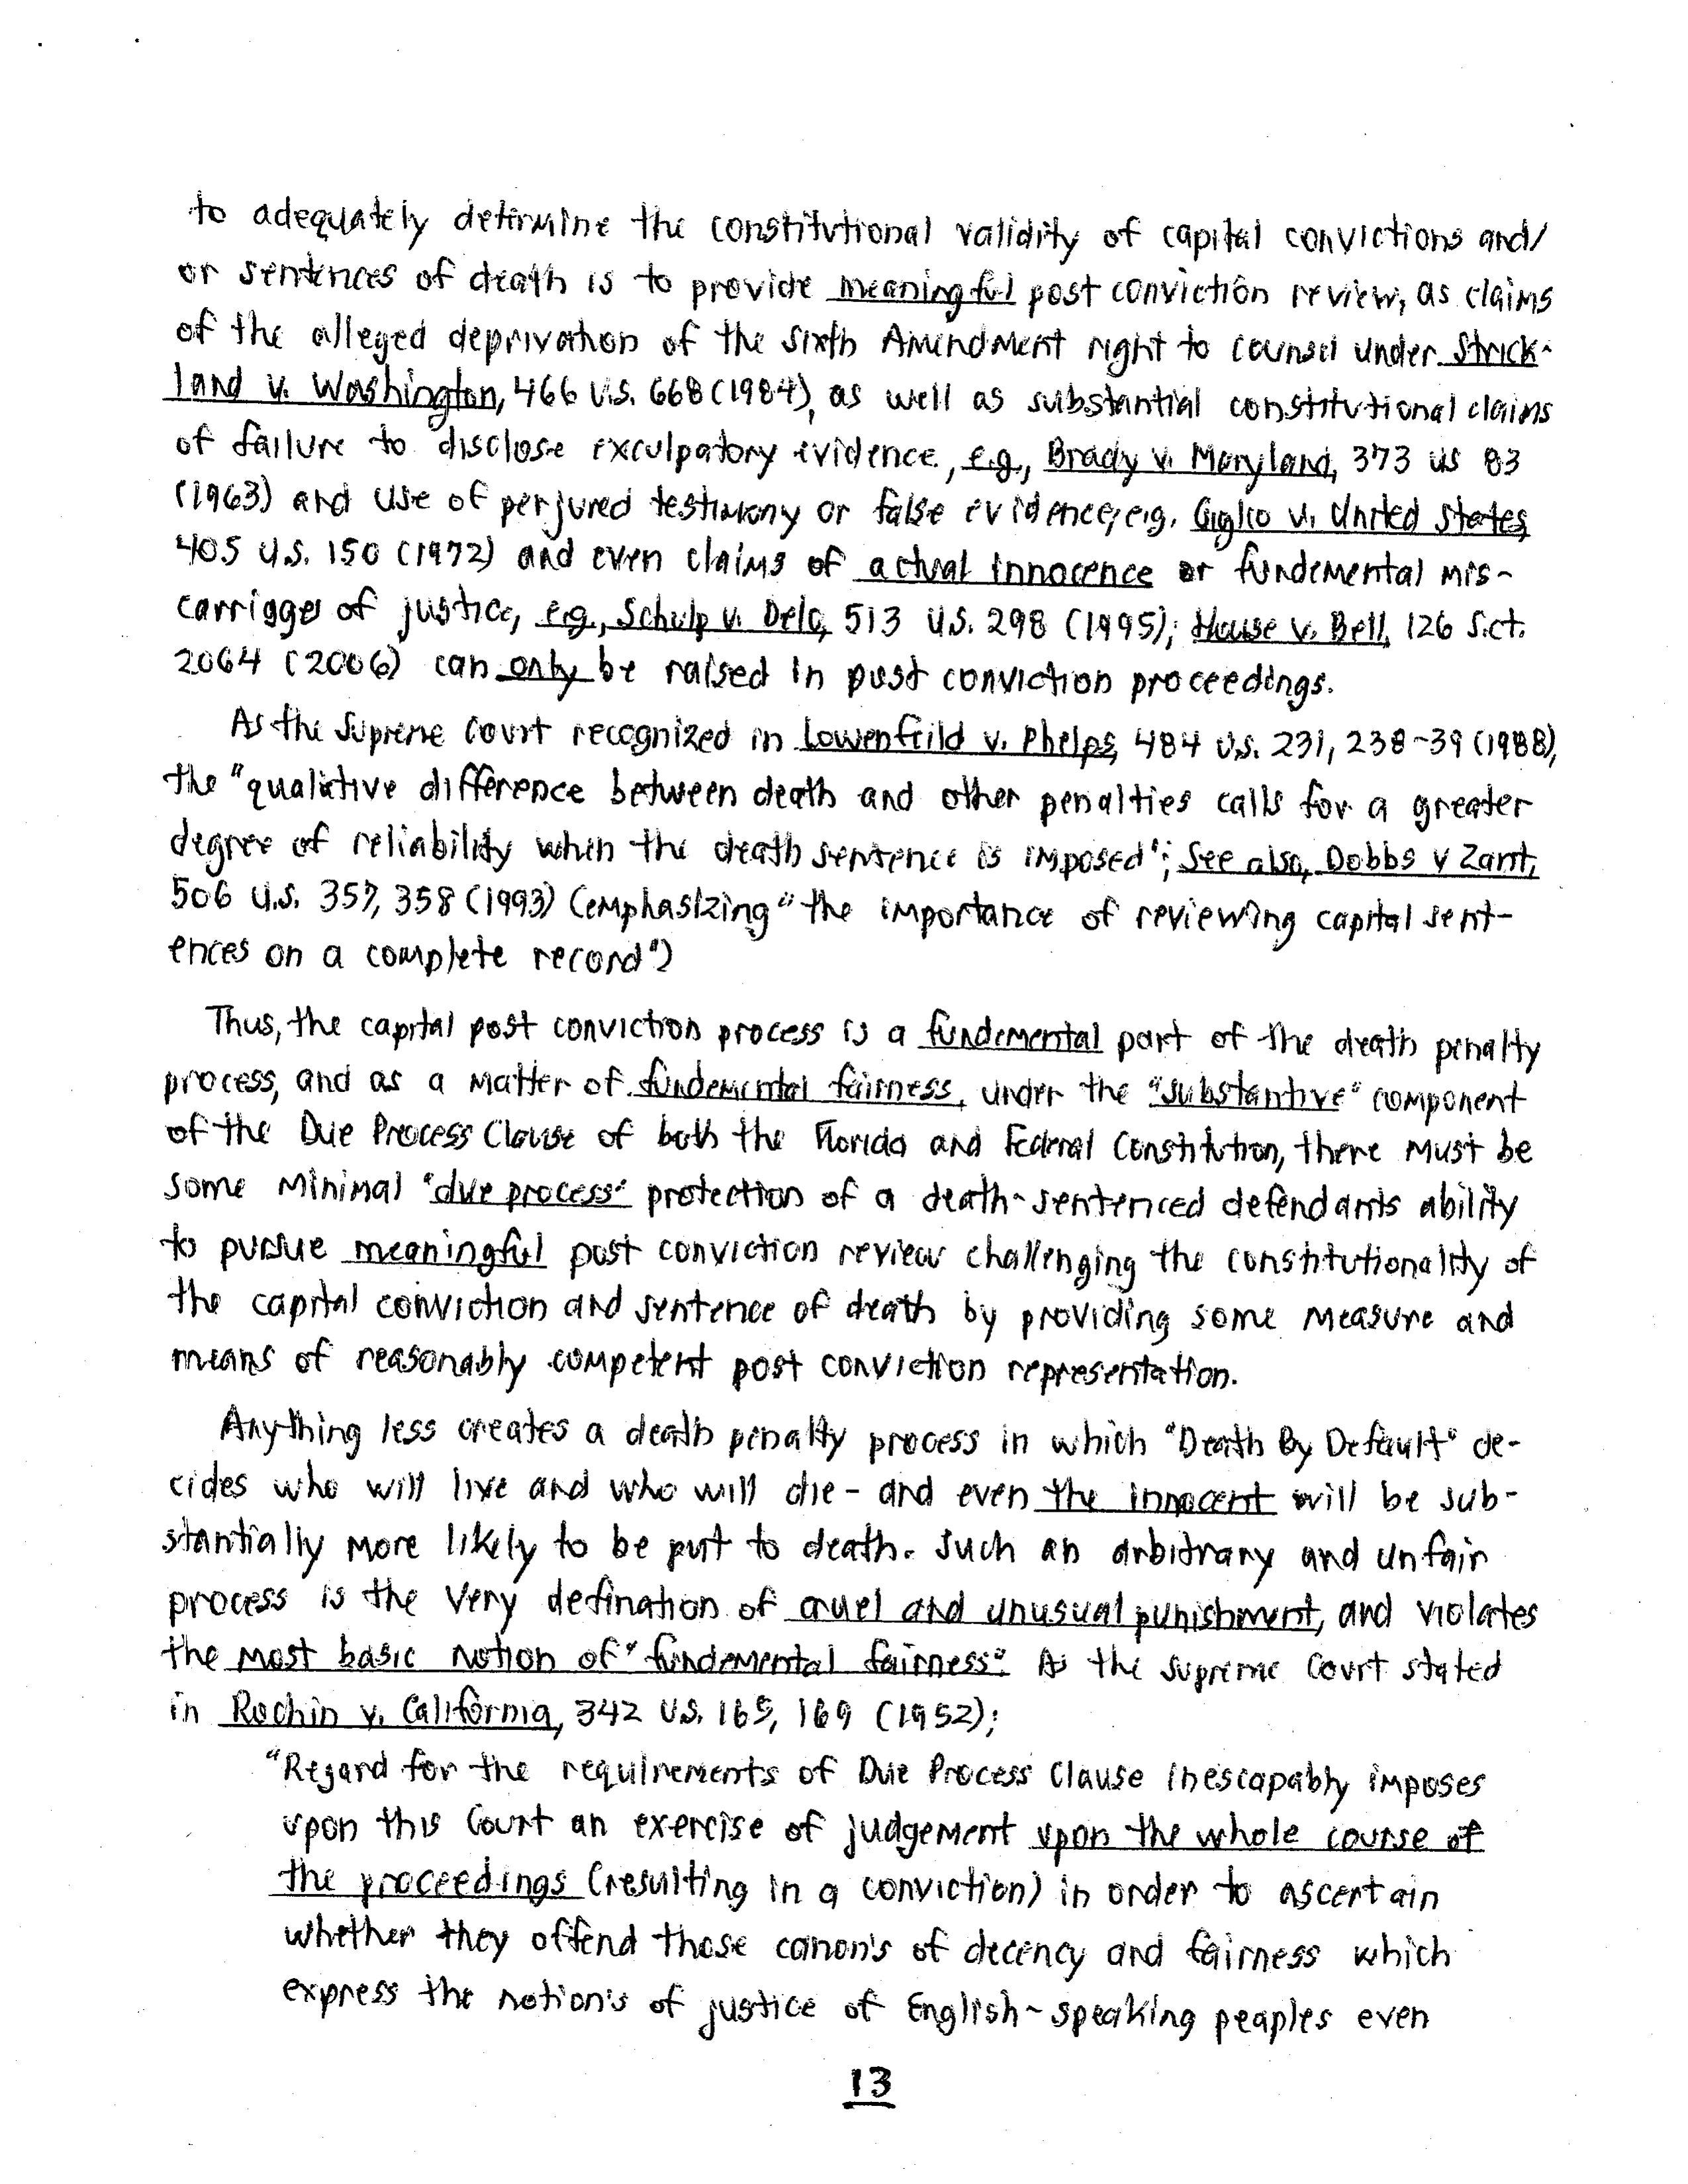 to adequately determine the constitutional validity of capital convictions and/
or sentences of death is to provide meaningful post conviction review, as claims
of the alleged deprivation of the Sixth Amendment right to counsel under Strick-
land v. Washington, 466 U.S. 668 (1984), as well as substantial constitutional claims
of failure to disclose exculpatory evidence, e.g., Brady v. Maryland, 373 US 83
(1963) and use of perjured testimony or false evidence, e.g. Giglio v. United States,
405 U.S. 150 (1972) and even claims of actual innocence or fundemental mis-
carriages of justice, e.g., Schulp v. Delo, 513 U.S. 298 (1995); House v. Bell, 126 S.ct.
2064 (2006) can only be raised in post conviction proceedings.
As the Supreme Court recognized in Lowenfeild v. Phelps, 484 U.S. 231, 238-39 (1988),
the "qualitive difference between death and other penalties calls for a greater
degree of reliability when the death sentence is imposed"; See also, Dobbs v Zant,
506 U.S. 357, 358 (1993) (emphasizing "the importance of reviewing capital sent-
ences on a complete record")
Thus, the capital post conviction process is a fundemental part of the death penalty
process, and as a matter of fundemental fairness, under the "substantive" component
of the Due Process Clause of both the Florida and Federal Constitution, there must be
some minimal "due process" protection of a death-sentenced defendants ability
to pursue meaningful post conviction review challenging the constitutionality of
the capital conviction and sentence of death by providing some measure and
means of reasonably competent post conviction representation.
Anything less creates a death penalty process in which "Death By Default" de-
cides who will live and who will die - and even the innocent will be sub-
stantially more likely to be put to death. Such an arbitrary and unfair
process is the very defination of cruel and unusual punishment, and violates
the most basic notion of "fundemental fairness". As the Supreme Court stated
in Rochin v. California, 342 U.S. 165, 169 (1952);
"Regard for the requirements of Due Process Clause inescapably imposes
upon this Court an exercise of judgement upon the whole course of
the proceedings (resulting in a conviction) in order to ascertain
whether they offend those canon's of decency and fairness which
express the notion's of justice of English-speaking peoples even
13